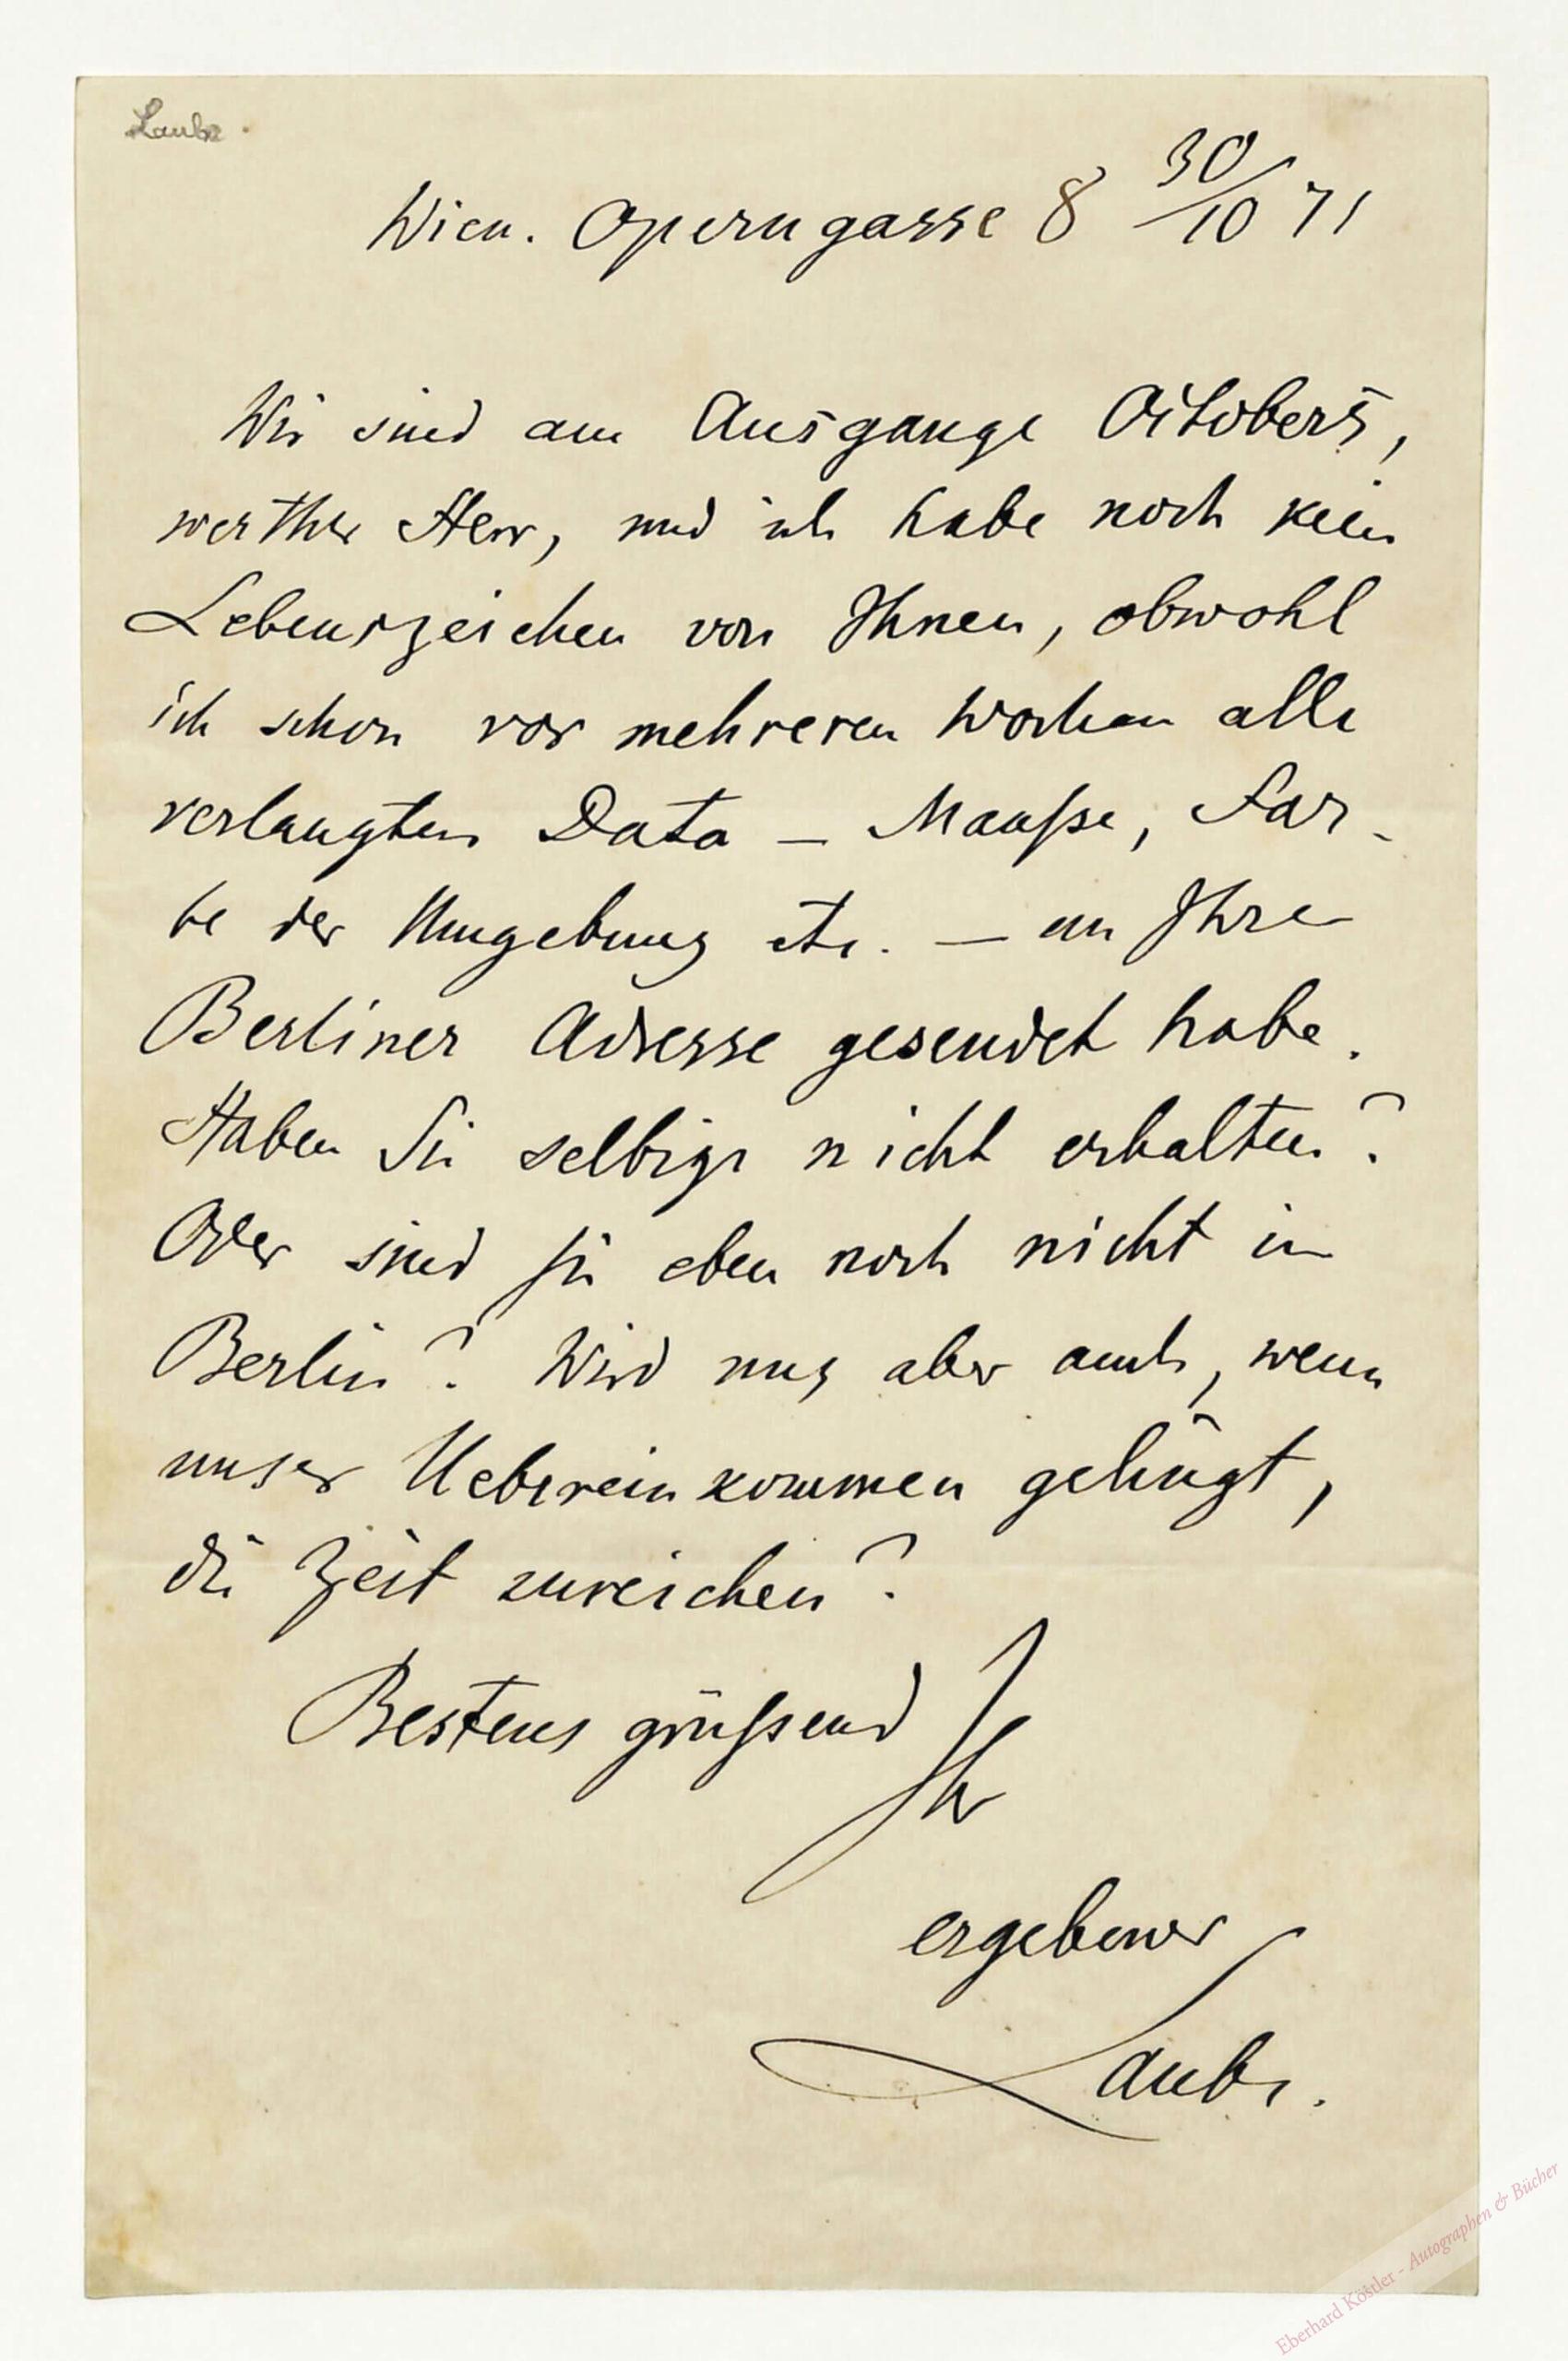 Laube
Wien. Operngasse 8 30/10 71
Wir sind am Ausgange Octobers,
werther Herr, und ich habe noch kein
Lebenszeichen von Ihnen, obwohl
ich schon vor mehreren Wochen alle
verlangten Data – Maaße, Far-
be der Umgebung etc. – an Ihre
Berliner Adresse gesendet habe.
Haben Sie selbige nicht erhalten?
Oder sind sie eben noch nicht in
Berlin? Wird uns aber auch, wenn
unser Uebereinkommen gelingt,
die Zeit zureichen?
Bestens grüßend
Ihr
ergebener
Laube.
Eberhard Köstler - Autographen & Bücher